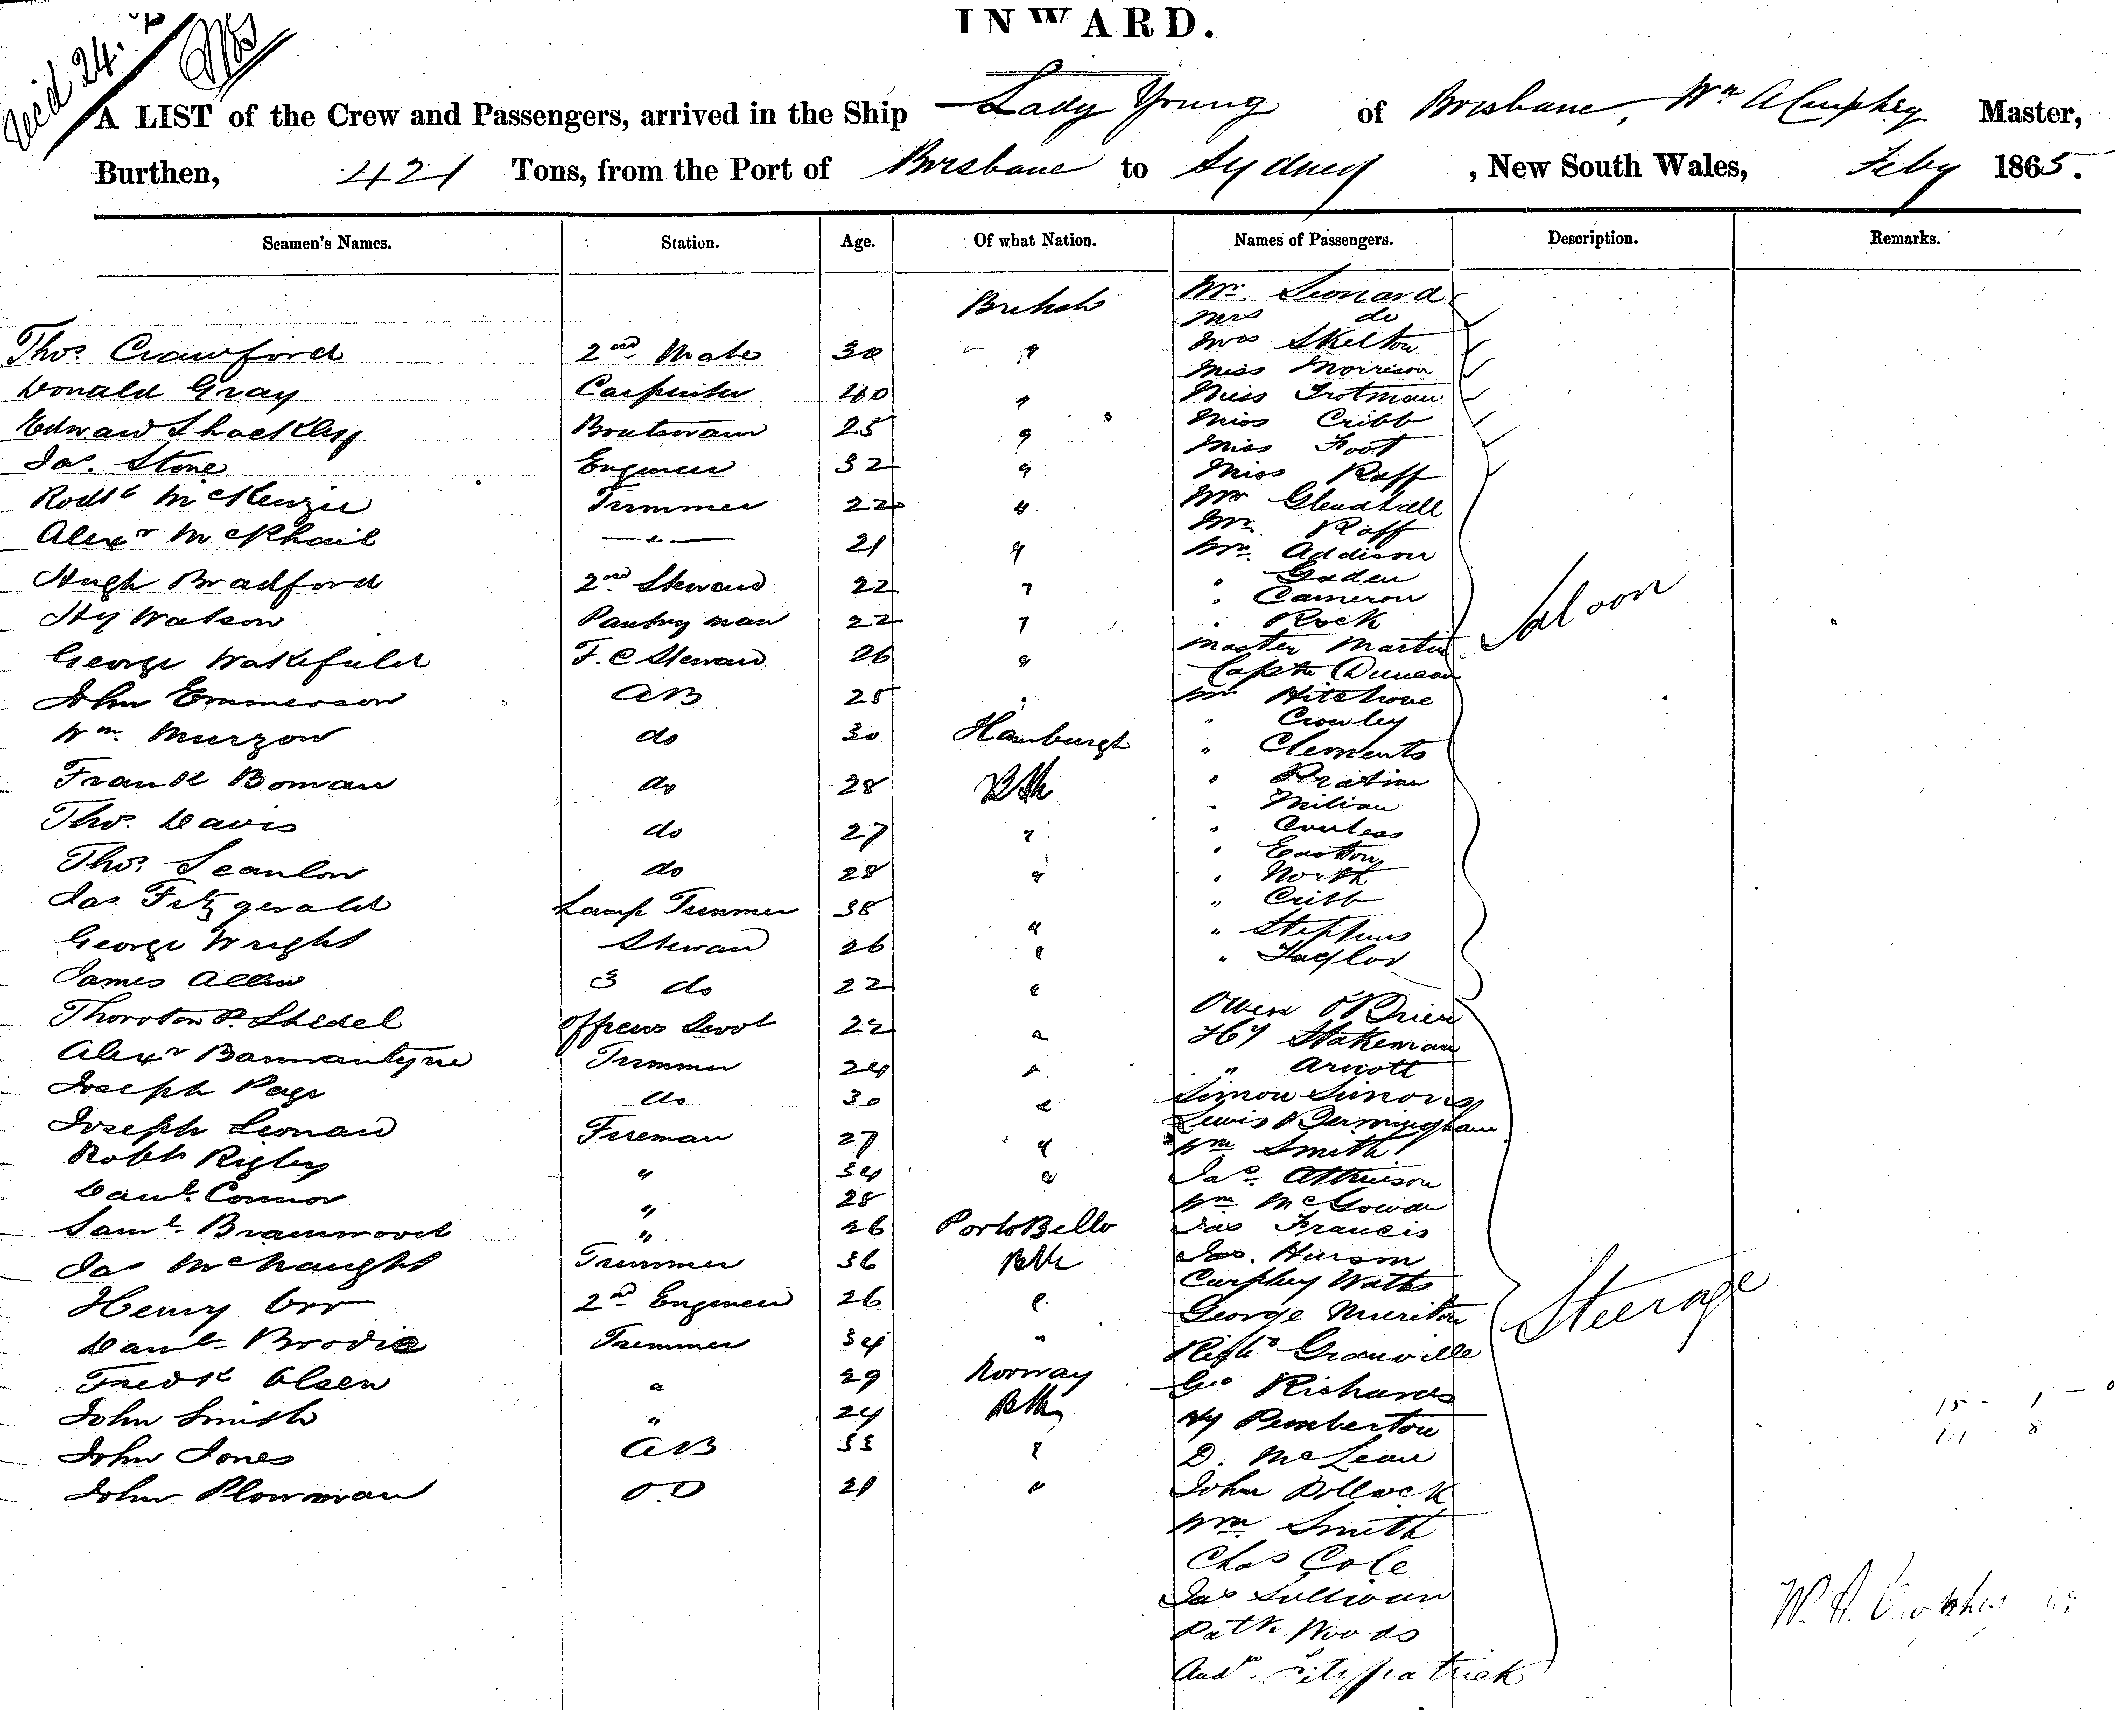 INWARD.
A LIST of the Crew and Passengers, arrived in the Ship Lady Young of Brisbane, Wm Master,
Burthen, 421 Tons, from the Port of Brisbane to Sydney, New South Wales, Feby 1865.
Seamen's Names. Station. Age. Of what Nation. Names of Passengers. Description. Remarks.
British Mr. Leonard
Mrs do
Thos. Crawford 2nd Mate 30 " Mrs Skelton
Miss Morrison
Donald Gray Carpenter 40 " Miss Trotman
Miss Cribb
Edward Shackley Boatswain 25 " Miss Foot
Jas. Stone Engineer 32 " Miss Raff
Rodk McKenzie Trimmer 22 " Mr
Mr. Raff
Alexr McPhail — " — 21 " Mr. Addison
" Gaden
Hugh Bradford 2nd Steward 22 " " Cameron
Hy Watson Pantry man 22 " " Rock
Master Martin
George Wakefield F. C Steward 26 " Captn Duncan
John Emmerson AB 25 " Mr
" Crowley
Wm. Murzow do 30 Hamburgh " Clements
Frank Boman do 28 Bth "
"
Thos. Davis do 27 " "
" Easton
Thos. Scanlon do 28 " " North
" Cribb
Jas Fitzgerald Lamp Trimmer 38 " " Stephens
George Wright Steward 26 " " Taylor
James Allen 3 do 22 "
Owen O'Brien
Thornton P. Officers Servt 22 " Hy Stakeman
Alexr Bannantyne Trimmer 24 " " Arnott
Joseph Page do 30 " Simon Simons
Lewis Bermingham
Joseph Leonard Fireman 27 " Wm Smith
Robt Rigley " 34 " Jas. Atkinson
Danl. Connor " 28 Wm McGowan
Saml. Bramwood " 26 PortoBello Jas Francis
Jas McNaught Trimmer 36 Bth Jas. Hirson
Curphey Watts
Henry Orr 2nd Engineer 26 " George Muriton
Danl. Brodie Trimmer 34 " Granville
Fredk Olsen " 29 Norway Geo Richards
John Smith " 24 Bth Hy Pemberton
John Jones AB 33 " D. McLean
John Plowman OD 21 " John Pollock
Wm Smith
Chas Cole
Jas Sullivan
Patk Woods
Andw. Fitzpatrick
Saloon
Steerage